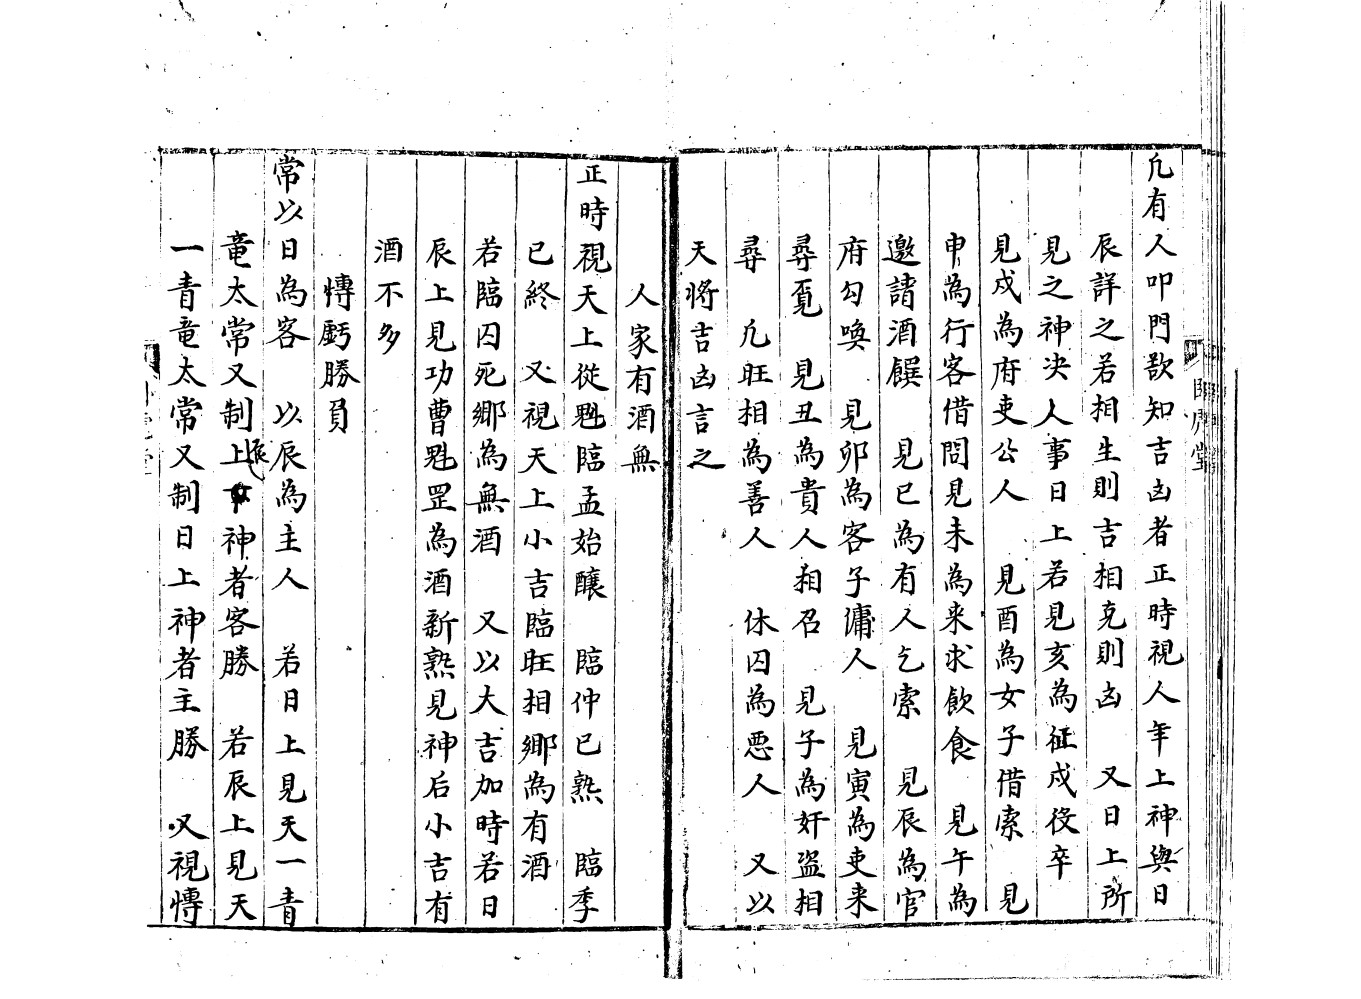 凢有人叩門欲知吉凶者正時視人年上神與日
辰詳之若相生則吉相克則凶　又日上所
見之神决人事日上若見亥為征戍役卒
見戍為府吏公人　見酉為女子借索　見
申為行客借問見未為来求飲食　見午為
邀請酒饌　見巳為有人乞索　見辰為官
府勾喚　見卯為客子傭人　見寅為吏来
尋覔　見丑為貴人相召　見子為奸盜相
尋　凢旺相為善人　休囚為悪人　又以
天將吉凶言之
人家有酒無
正時視天上從魁臨孟始釀　臨仲已熟　臨季
已終　又視天上小吉臨旺相鄉為有酒
若臨囚死鄉為無酒　又以大吉加時若日
辰上見功曹魁罡為酒新熟見神后小吉有
酒不多
慱戱勝負
常以日為客　以辰為主人　若日上見天一青
竜太常又制辰上神者客勝　若辰上見天
一青竜太常又制日上神者主勝　又視慱